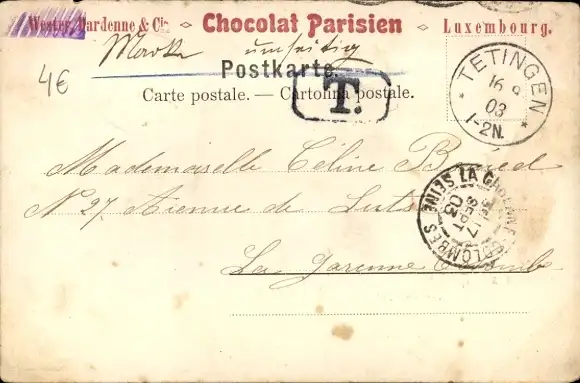 Wester, Dardenne & Cie Chocolat Parisien Luxembourg.
Marke umseitig
4€
Postkarte.
T.
Carte postale. — Cartolina postale.
TETINGEN
16 9
03
1-2N.
Mademoiselle Céline
N° 27 Avenue de
LA GARENNE COLOMBES SEINE
17
SEPT
03
La Garenne Colombes